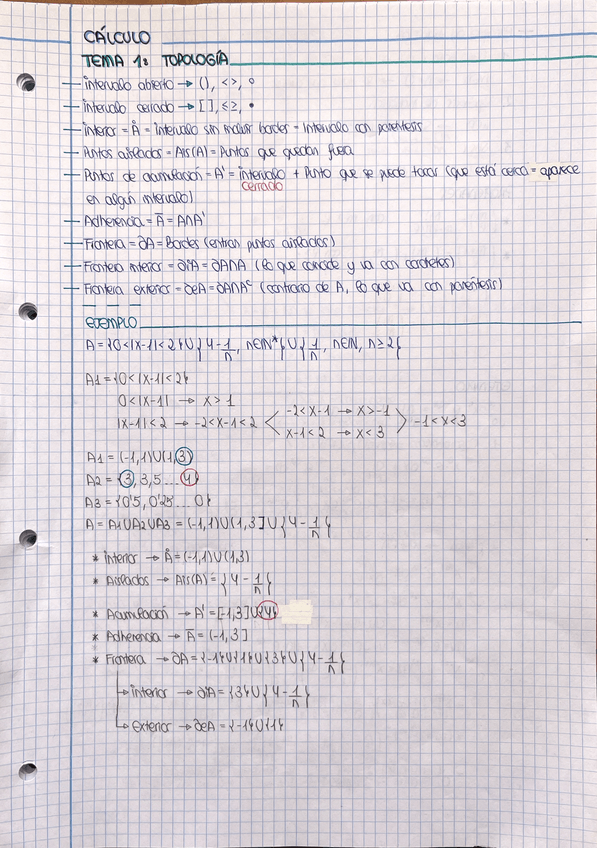 CÁLCULO
TEMA 1: TOPOLOGÍA
— intervalo abierto → (), < >, ∘
— intervalo cerrado → [ ], ≤ ≥, •
— Interior = Å = Intervalo sin incluir bordes = Intervalo con paréntesis
— Puntos aislados = Ais(A) = Puntos que quedan fuera
— Puntos de acumulación = A' = intervalo + Punto que se puede tocar (que está cerca = aparece
cerrado
en algún intervalo)
— Adherencia = A̅ = A∩A'
— Frontera = ∂A = Bordes (entran puntos aislados)
— Frontera interior = ∂iA = ∂A∩A (lo que coincide y va con corchetes)
— Frontera exterior = ∂eA = ∂A∩Aᶜ (contrario de A, lo que va con paréntesis)
— — —
EJEMPLO
A = {0<|x-1|<2} ∪ {4 - 1/n, n∈ℕ*} ∪ {1/n, n∈ℕ, n≥2}
A1 = {0<|x-1|<2}
0<|x-1| → x>1
|x-1|<2 → -2<x-1<2 < -2<x-1 → x>-1 > -1<x<3
x-1<2 → x<3
A1 = (-1,1)∪(1,3)
A2 = {3, 3,5 ... 4}
A3 = {0'5, 0'25 ... 0}
A = A1∪A2∪A3 = (-1,1)∪(1,3]∪{4 - 1/n}
* interior → Å = (-1,1)∪(1,3)
* Aislados → Ais(A) = {4 - 1/n}
* Acumulación → A' = [-1,3]∪{4}
* Adherencia → A̅ = (-1,3]
* Frontera → ∂A = {-1}∪{1}∪{3}∪{4 - 1/n}
↳ interior → ∂iA = {3}∪{4 - 1/n}
↳ exterior → ∂eA = {-1}∪{1}